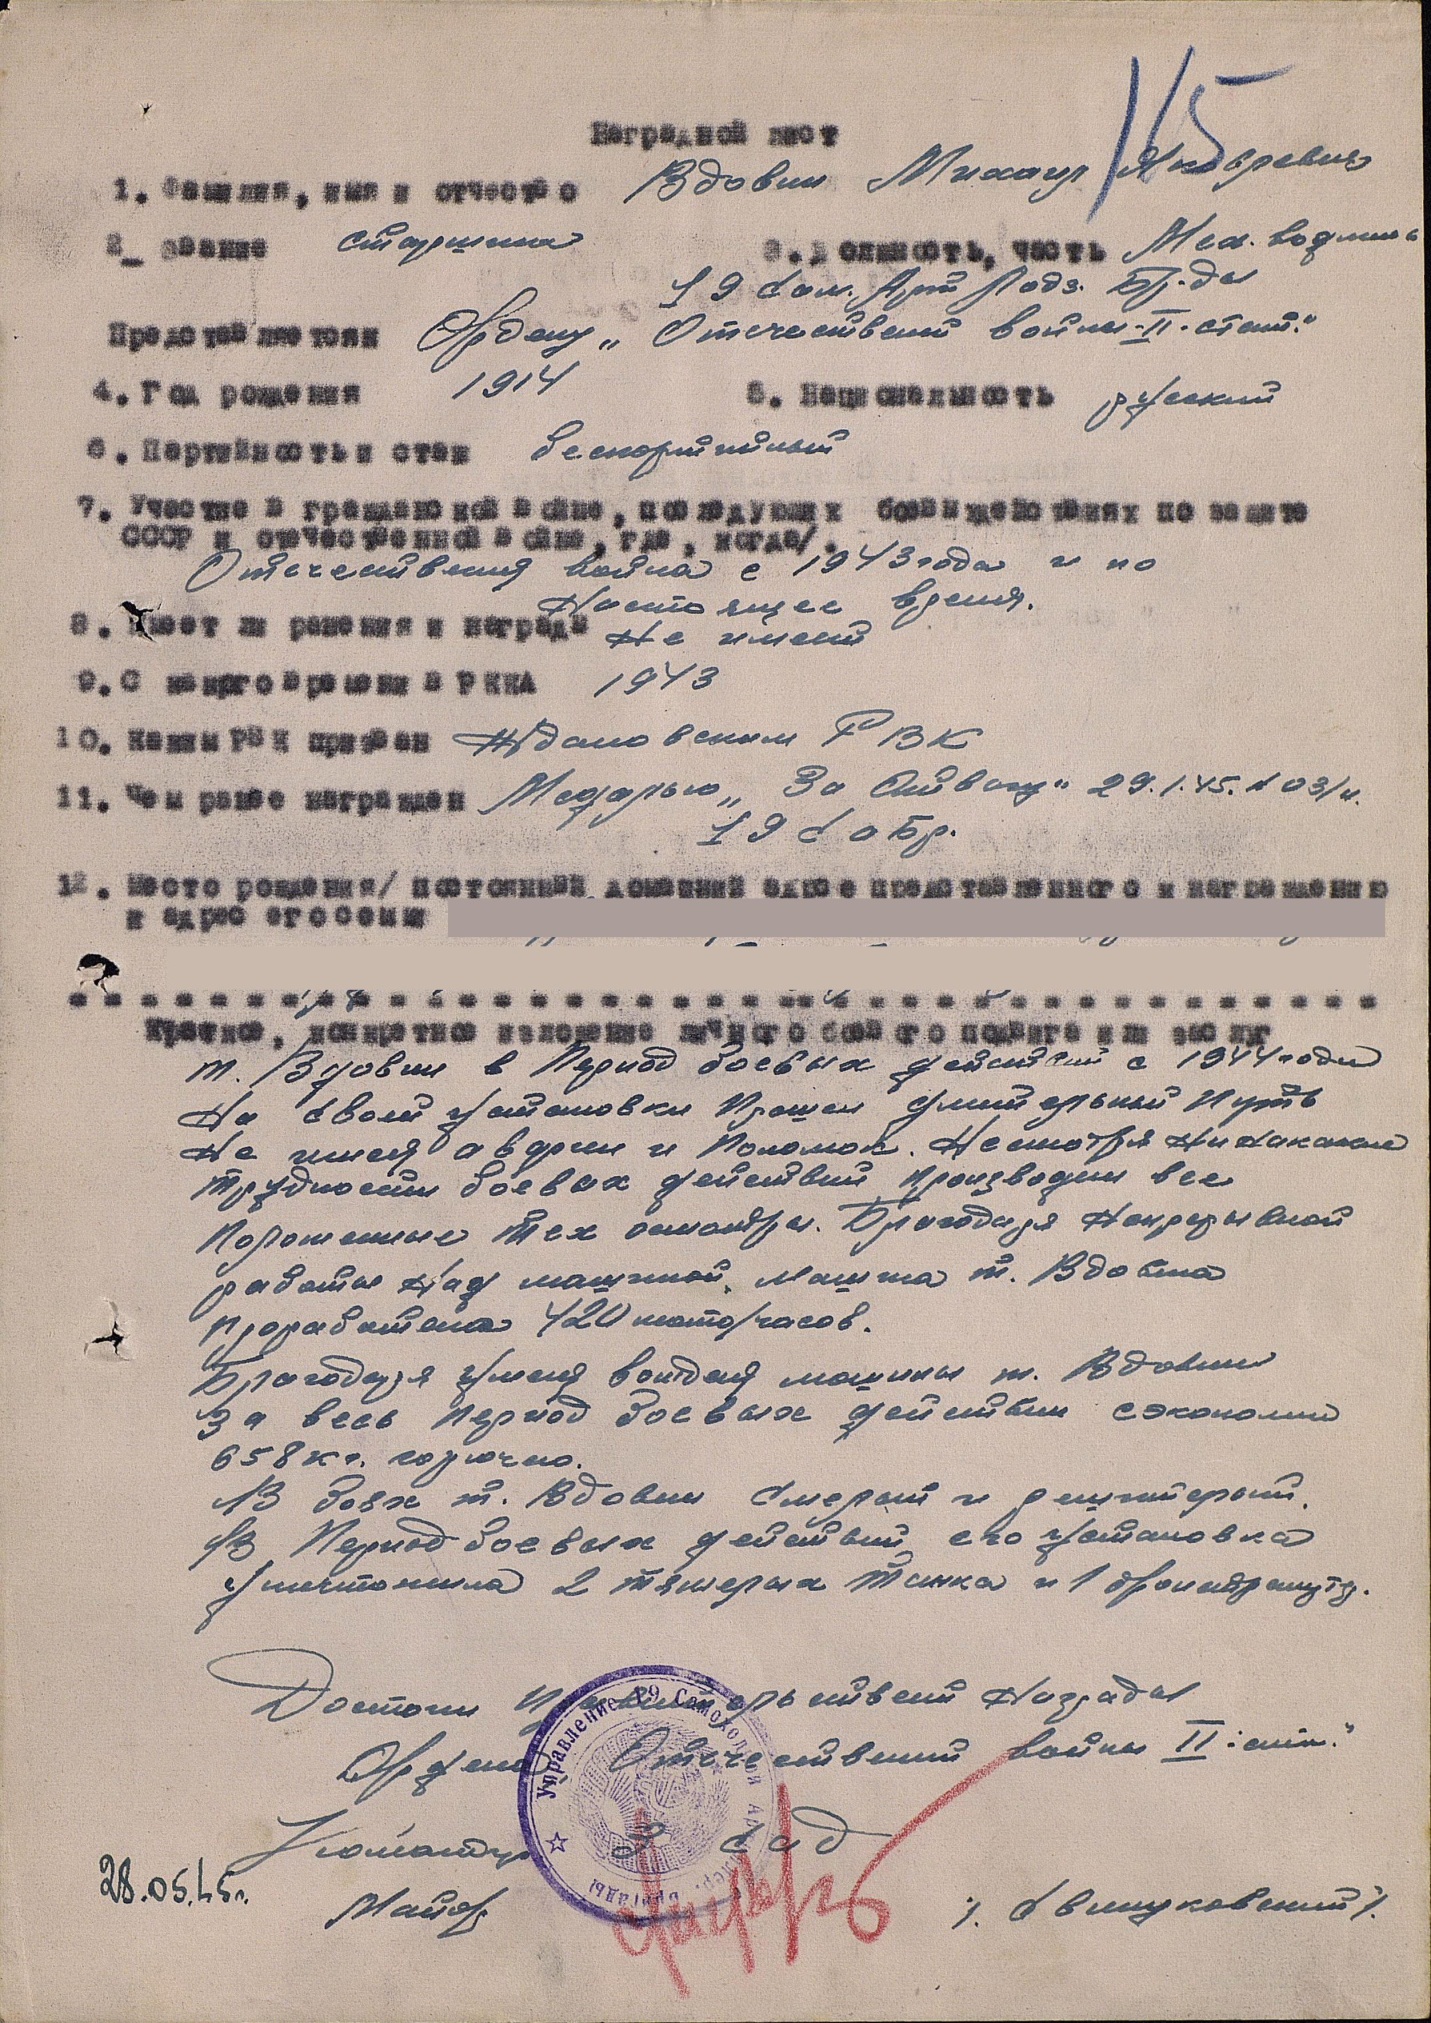 115
Наградной лист
1. Фамилия, имя и отчество Вдовин Михаил Яковлевич
2_ звание старшина 3. Должность, часть Мех. водитель
19 Сам. Арт Лодз. Бр-ды
Представляется к Ордену „Отечествений войны-II-степ."
4. Год рождения 1914 5. Национальность русский
6. Партийность и стаж беспартийный
7. Участие в гражданской войне, последующих боевых действиях по защите
СССР и отечественной войне, где, когда/.
Отечественая война с 1943 года и по
настоящее время.
8. Имеет ли ранения и награды не имеит
9. С какого времени в РККА 1943
10. Каким РВК призван Ждановским РВК
11. Чем ранее награжден Медалью „За Отвагу" 29.1.45. N 03/н.
19 СаБр.
12. Место рождения/ постоянный домашний адрес представленного к награждению
и адрес его семьи
Краткое, конкретное изложение личного боевого подвига или заслуг
т. Вдовин в период боевых действий с 1944 года
на своей установки прошел длительный путь
не имея аварии и поломок. Несмотря ни на какие
трудности боевых действий производил все
положенные тех осмотры. Благодаря непрерывной
работы над машиной, машина т. Вдовина
проработала 420 мото/часов.
Благодаря умения вождения машины т. Вдовин
за весь период боевых действии сэкономил
658 кг. горючего.
В боях т. Вдовин смелый и решительный.
В период боевых действий его установка
уничтожила 2 тяжелых танка и 1 бронетранспорт.
Достоин правительственой награды
Ордена Отечествений войны II-степ."
Управление 19 Самоходной Артиллер. Бригады
Командир 3 Сад
28.05.45г.
Майор /. Свинуковский /.